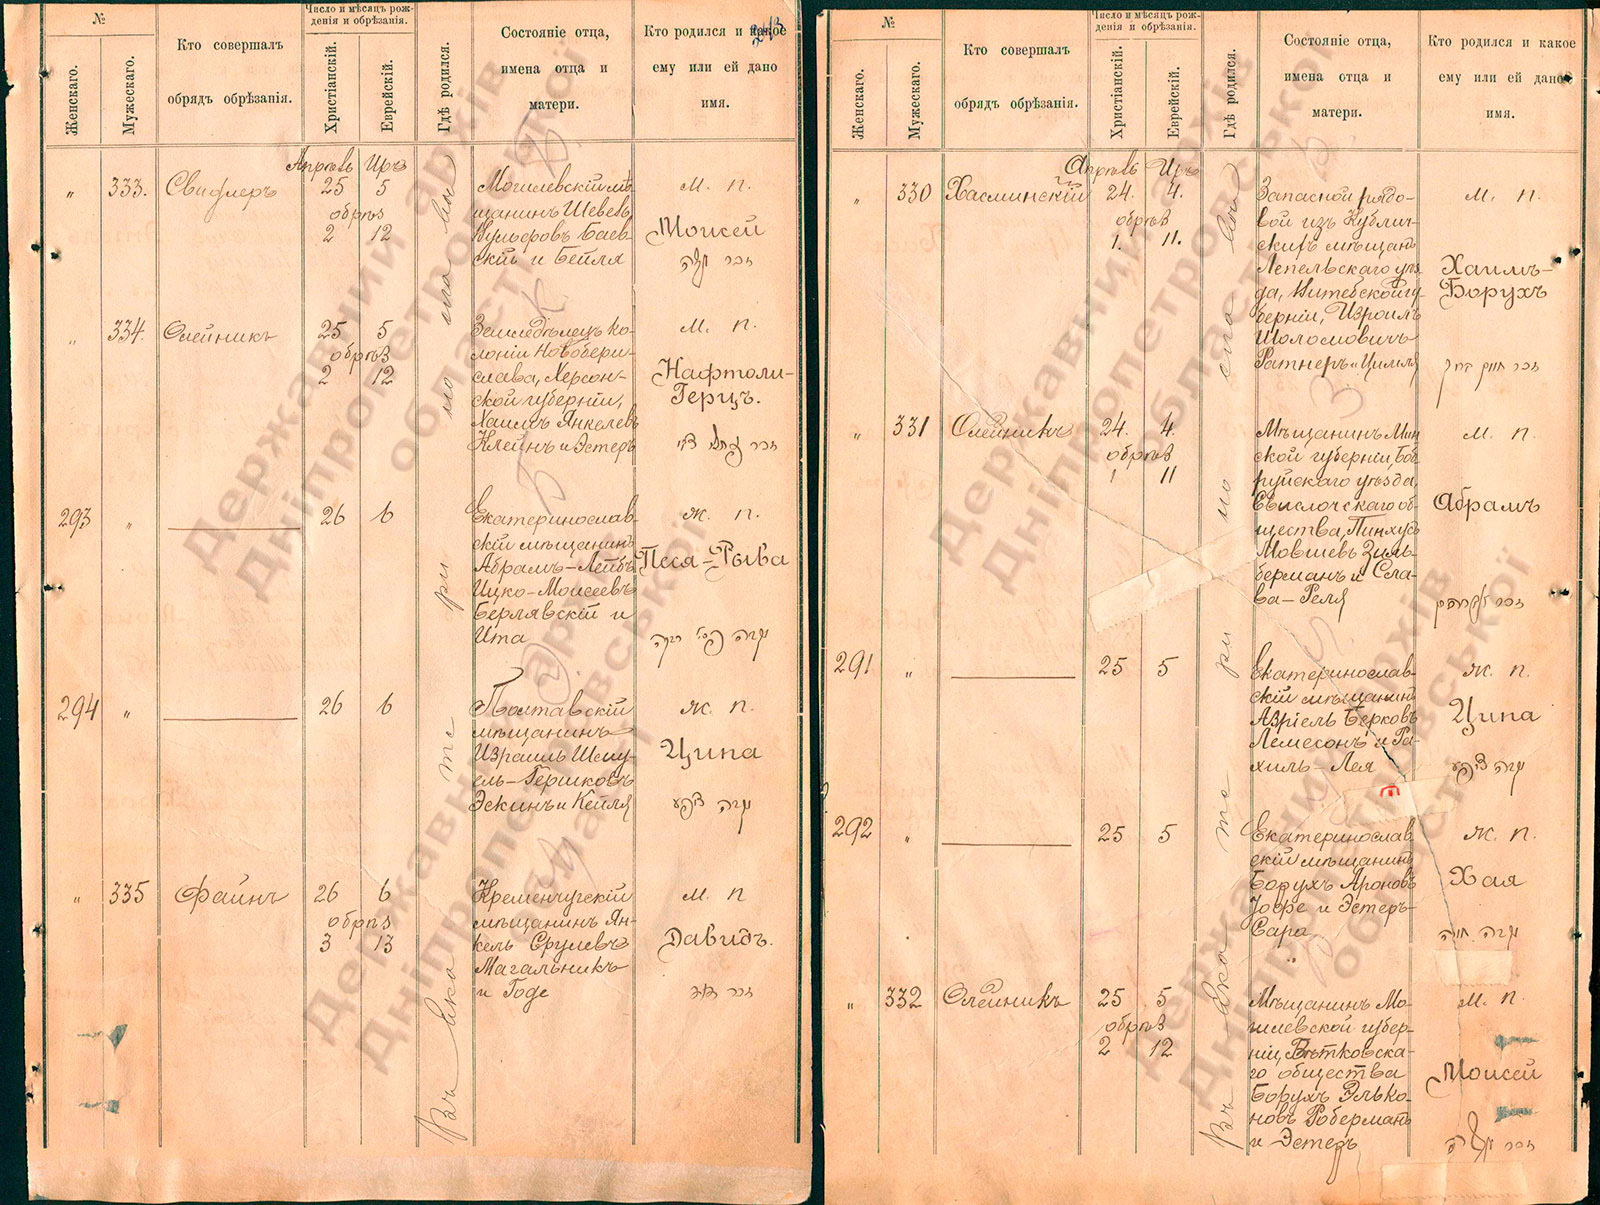 №
Женскаго.
Мужескаго.
Кто совершалъ
обрядъ обрѣзанія.
Число и мѣсяцъ рож-
денія и обрѣзанія.
Христіанскій.
Еврейскій.
Гдѣ родился.
Состояніе отца,
имена отца и
матери.
Кто родился и какое
ему или ей дано
имя.
243
Апрѣль Иръ
" 333. Свифлеръ 25 5
обрѣз
2 12
Могилевскій мѣ-
щанинъ Шевель
Вульфовъ Баев-
скій и Бейля
м. п.
Моисей
זכר משה
" 334. Олейникъ 25 5
обрѣз
2 12
Земледѣлецъ ко-
лоніи Новобери-
слава, Херсон-
ской губерніи,
Хаимъ Янкелевъ
Клейнъ и Эстеръ
м. п.
Нафтоли-
Герцъ.
זכר
293 " 26 6
Екатеринослав-
скій мѣщанинъ
Абрамъ-Лейбъ
Ицко-Моисеевъ
Берлявскій и
Ита
ж. п.
Песя-Рыва
נקבה
294 " 26 6
Полтавскій
мѣщанинъ
Израиль Шему-
ель-Гершковъ
Эскинъ и Кейля
ж. п.
Ципа
נקבה ציפע
" 335 Файнъ 26 6
обрѣз
3 13
Кременчугскій
мѣщанинъ Ян-
кель Срулевъ
Магальникъ
и Годе
м. п
Давидъ.
זכר דוד
Въ Екатеринославѣ
№
Женскаго.
Мужескаго.
Кто совершалъ
обрядъ обрѣзанія.
Число и мѣсяцъ рож-
денія и обрѣзанія.
Христіанскій.
Еврейскій.
Гдѣ родился.
Состояніе отца,
имена отца и
матери.
Кто родился и какое
ему или ей дано
имя.
Апрѣль Иръ
" 330 Хасминскій 24. 4.
обрѣз
1. 11.
Запасной рядо-
вой изъ Кублич-
скихъ мѣщанъ
Лепельскаго уѣз-
да, Витебской гу-
берніи, Израиль
Шоломовичъ
Ратнеръ и Цимля
м. п.
Хаимъ-
Борухъ
זכר חיים ברוך
" 331 Олейникъ 24. 4.
обрѣз
1 11
Мѣщанинъ Мин
ской губерніи, Боб
руйскаго уѣзда,
Свислочскаго об-
щества, Пинхусъ
Мовшевъ Зиль-
берманъ и Сла-
ва-Реля
м. п.
Абрамъ
זכר אברהם
291 " 25 5
Екатеринослав-
скій мѣщанинъ
Азріель Берковъ
Лемесонъ и Ра-
хиль-Лея
ж. п.
Ципа
נקבה ציפע
292 " 25 5
Екатеринослав
скій мѣщанинъ
Борухъ Ароновъ
Іоффе и Эстеръ-
Сара
ж. п.
Хая
נקבה חיה
" 332 Олейникъ 25 5
обрѣз
2 12
Мѣщанинъ Мо-
гилевской губер-
ніи, Вѣтковска-
го общества
Борухъ Элько-
новъ Роберманъ
и Эстеръ
м. п.
Моисей
זכר משה
Въ Екатеринославѣ
Державний архів
Дніпропетровської
області